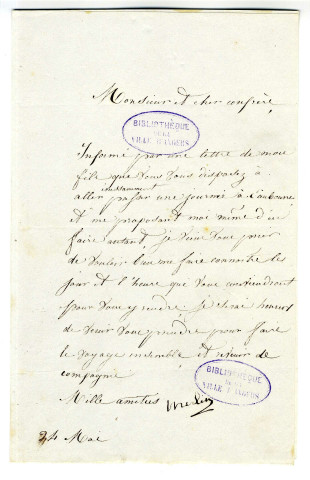 Monsieur et cher confrère,
BIBLIOTHÈQUE
DE LA
VILLE D'ANGERS
Informé par une lettre de mon
fils que vous vous disposez à
incessamment
aller passer une journée à
et me proposant moi même d'en
faire autant, je viens vous prier
de vouloir bien me faire connaître les
jour et l'heure que vous conviendront
pour vous y rendre. je serai heureux
de venir vous prendre pour faire
le voyage ensemble et revenir de
compagnie
BIBLIOTHÈQUE
DE LA
VILLE D'ANGERS
Mille amitiés
24 Mai